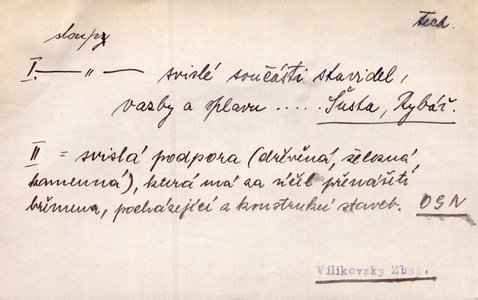 tech.
sloupy
I. —„— svislé součásti stavidel,
vazby a splavu ..... Šusta, Rybář.
II = svislá podpora (dřevěná, železná,
kamenná), která má za účel přenášeti
břemena, pocházející z konstrukcí staveb. OSN
Vilikovský Zboj.